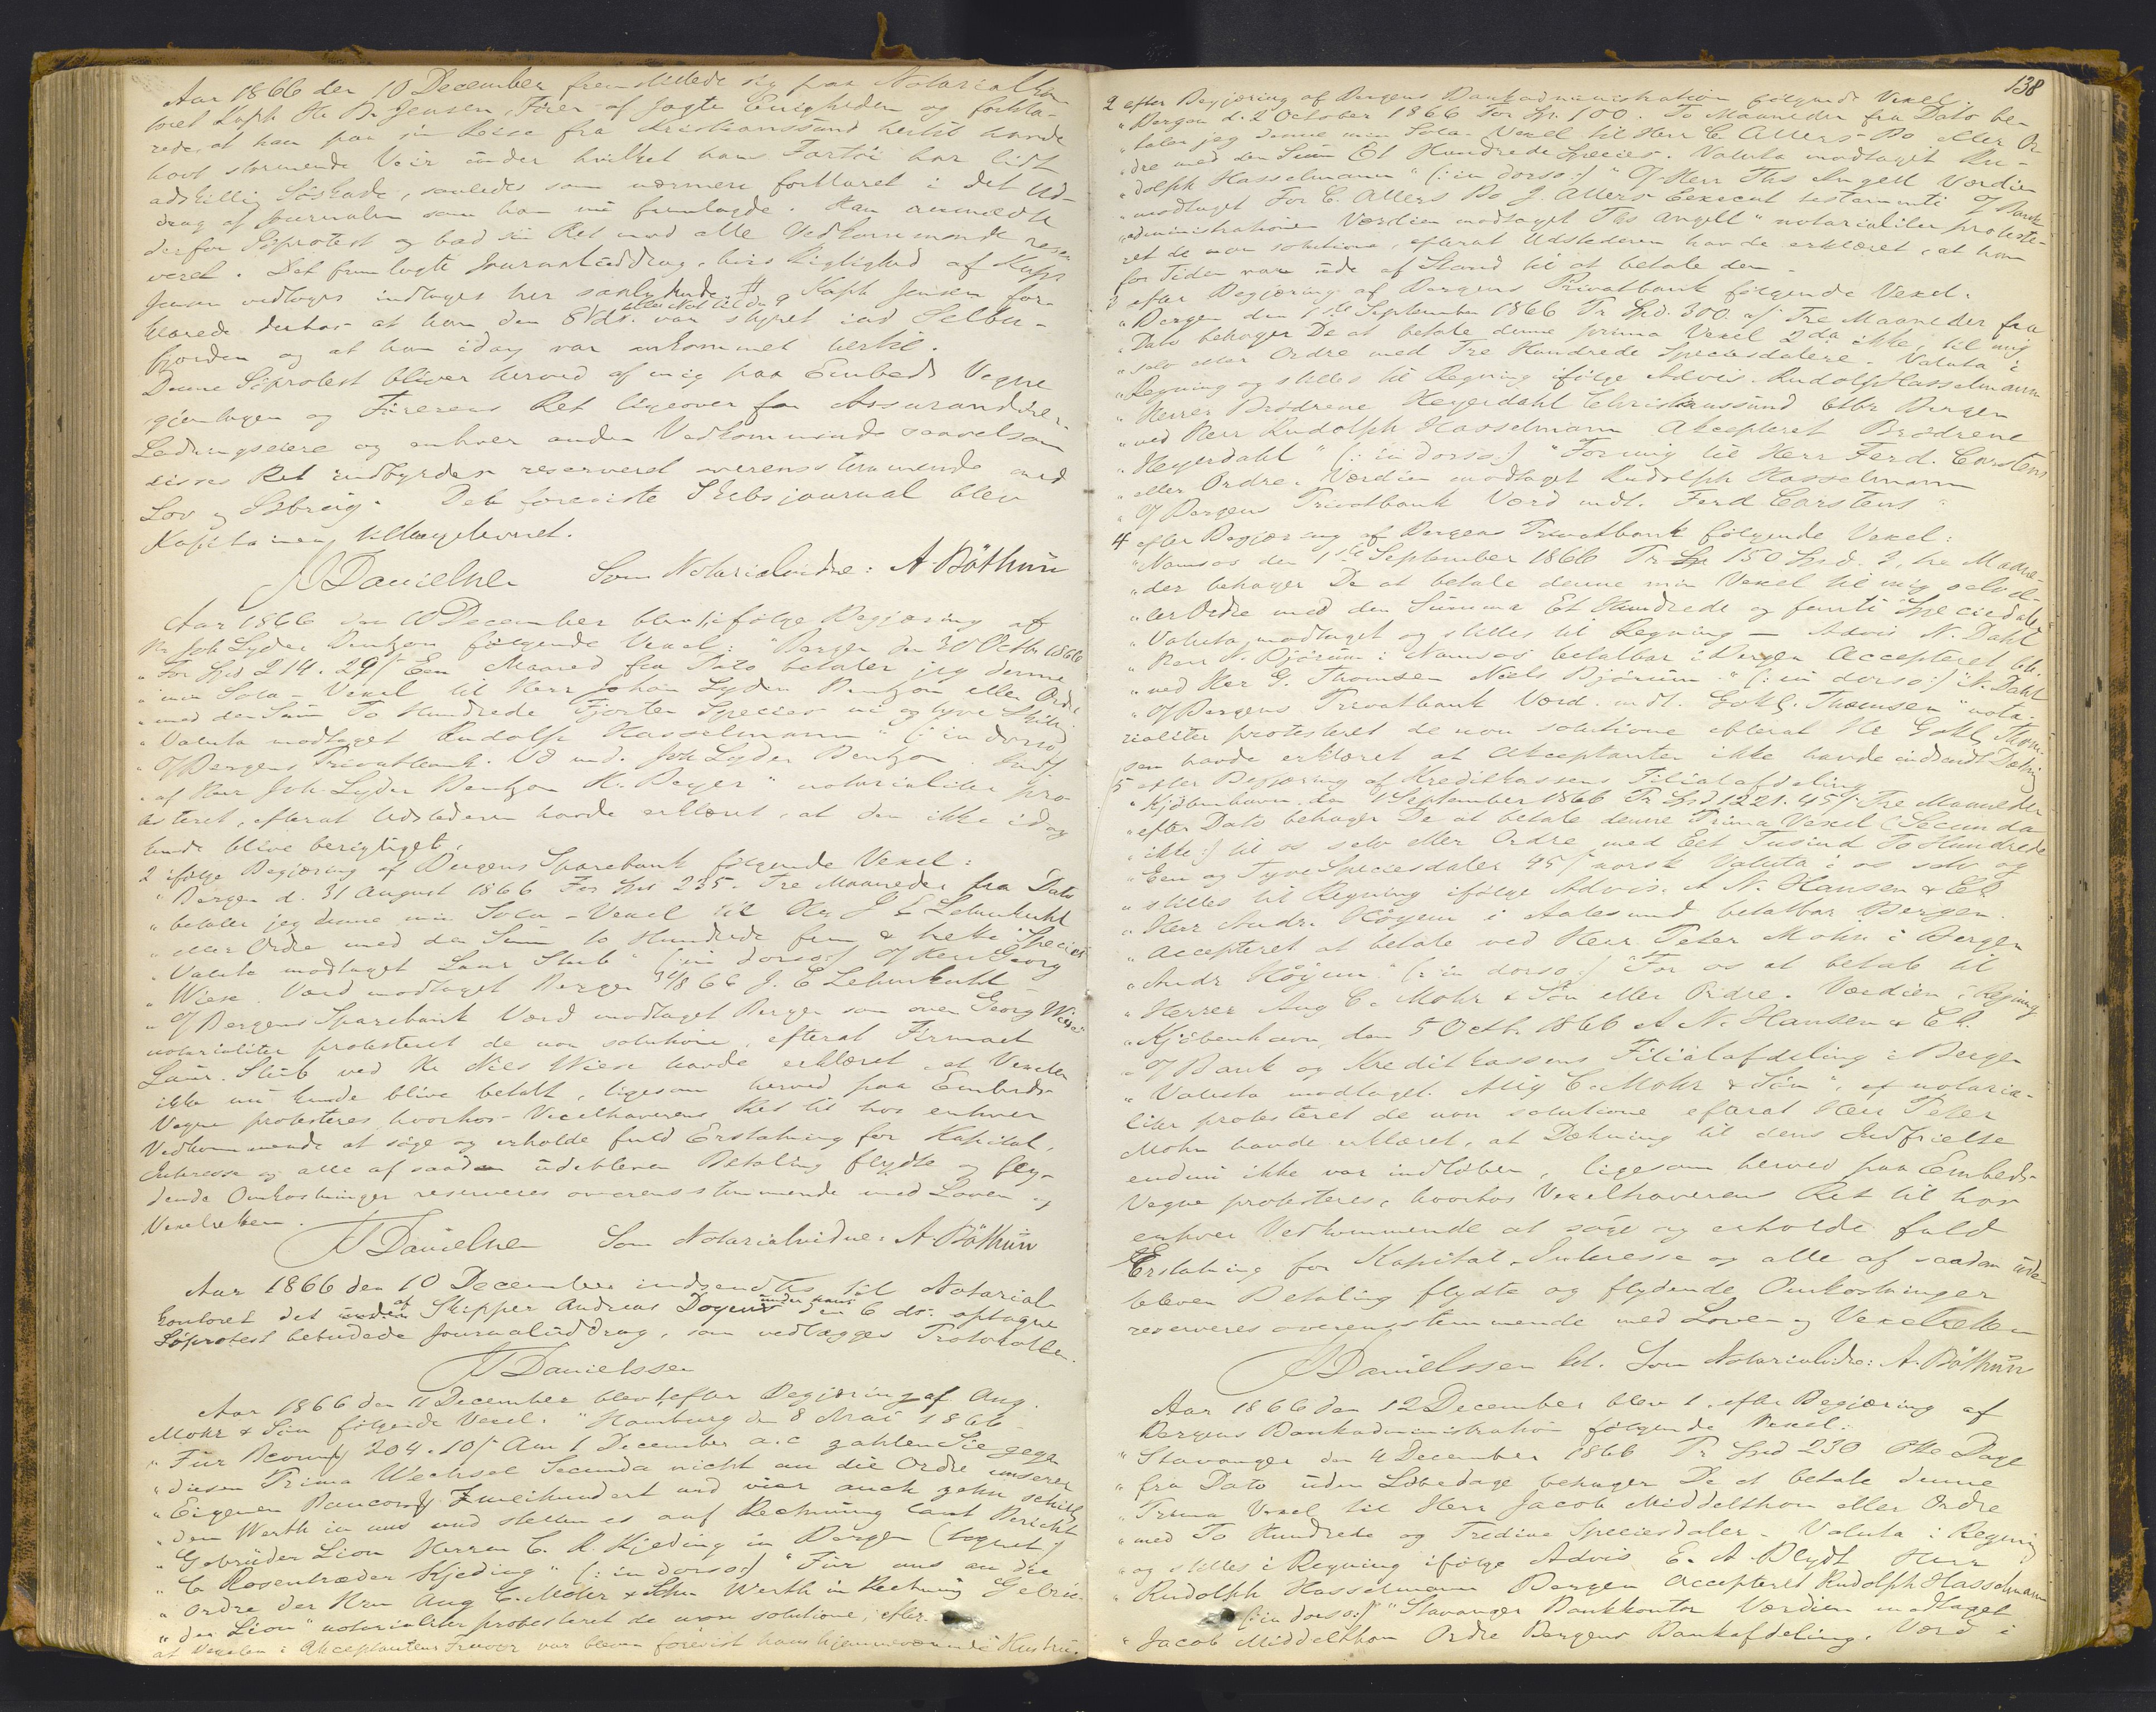 Aar 1866 den 10 December fremstillede sig paa Notarialkon-
toret Kaph H. B. Jensen, Fører af Jagte Enigheden og forkla-
rede, at han paa sin Reise fra Kristianssund hertil havde
havt stormende Veir under hvilket hans Fartöi har lidt
adskillig Söskade, saaledes som nærmere forklaret i det Ud-
drag af Journalen som han nu fremlagde. Han anmeldte
derfor Söprotest og bad sin Ret mod alle Vedkommende reser
veret. Det fremlagte Journaluddrag, hvis Rigtighed af Kaph
Jensen vedtoges indtages her saalydende # Kaph Jensen for-
klarede derhos at han den 8 ds. eller Nat til den 9 var styret ind Selbö-
fjorden og at han idag var ankommet hertil.
Denne Söprotest bliver herved af mig paa Embeds Vegne
gjentagen og Förerens Ret ligeover for Assurandörer
Ladningseiere og enhver anden Vedkommende saavelsom
disses Ret indbyrdes reserveret overensstemmende med
Lov og Söbrug. Den foreviste Skibsjournal blev
Kapitainen tilbageleveret.
JDanielsen Som Notarialvidne: A. Böthun
Aar 1866 den 10 December blev 1, ifölge Begjæring af
Hr Joh Lyder Bentzon fölgende Vexel: "Bergen den 30 Octbr 1866
" For Spd 214. 29ß Een Maaned fra Dato betaler jeg denne
" min Sola-Vexel til Herr Johan Lyder Bentzon eller Ordre
" med den Sum To Hundrede Fjorten Species ni og tyve Skill.
" Valuta modtaget Rudolph Hasselmann" (: in dorso:)
" Til Bergens Privatbank. Vd md. Joh Lyder Bentzon.
" af Herr Joh. Lyder Bentzon H. Beyer" notarialiter pro-
testeret, efterat Udstederen havde erklæret, at den ikke idag
kunde blive berigtiget.
2 ifölge Begjæring af Bergens Sparebank fölgende Vexel:
" Bergen d. 31 August 1866 For Spd 235. Tre Maaneder fra Dato
" betaler jeg denne min Sola-Vexel til Hr J E Lehmkuhl
" eller Ordre med den Sum to Hundrede fem & treti Species
" Valuta modtaget Laur Stub" (: in dorso:) Til Herr Georg
" Wiese. Værd modtaget Bergen 31/8 66 J. E Lehmkuhl
" Til Bergens Sparebank Værd modtaget Bergen som oven Georg Wiese"
notarialiter protesteret de non solutione, efterat Firmaet
Laur. Stub ved Hr Niels Wiese havde erklæret at Vexelen
ikke nu kunde blive betalt, ligesom herved paa Embeds
Vegne protesteres hvorhos Vexelhaverens Ret til hos enhver
Vedkommende at söge og erholde fuld Erstatning for Kapital,
Interesse og alle af saadan udebleven Betaling flydte og fly-
dende Omkostninger reserveres overensstemmende med Loven og
Vexelretten.
JDanielsen Som Notarialvidne: A. Böthun
Aar 1866 den 10 December indsendtes til Notarial
kontoret det af Skipper Andreas Doyens under hans den 6 ds: optagne
Söprotest bebudede Journaluddrag, som vedlægges Protokollen.
JDanielssen
Aar 1866 den 11 December blev 1, efter Begjæring af Aug.
Mohr & Sön fölgende Vexel: "Hamburg den 8 Mai 1866
" Für Bcomf 204.10ß Am 1 December a.c zahlen Sie gegen
" diesen Prima Wechsel Secunda nicht an die Ordre unserer
" Eigenen Bancomf Zweihundert und vier auch zehn Schill
" den Werth in uns und stellen es auf Rechnung laut Bericht
" Gebrüder Lion Herren C. R. Kjeding in Bergen (tegnet)
" C Rosenkræder Kjeding" (: in dorso:) "Für uns an die
" Ordre der Hrn Aug C. Mohr & Sohn Werth in Rechnung Gebrü-
" der Lion" notarialiter protesteret de non solutione, efter-
at Vexelen i Akceptantens Fravær var bleven forevist hans hjemmeværende Hustru.
138
2 efter Begjæring af Bergens Bankadministration fölgende Vexel.
" Bergen d. 2 October 1866 For Sp. 100. To Maaneder fra Dato be-
" taler jeg denne min Sola-Vexel til Herr C Allers Bo eller Or-
" dre med den Sum Et Hundrede Species. Valuta modtaget Ru-
" dolph Hasselmann" (: in dorso:) "Til Herr Ths Angell Værdien
" modtaget For C. Allers Bo J. Allers Execut testamenti Til Bank
" administrationen Værdien modtaget Ths Angell" notarialiter proteste-
ret de non solutione, efterat Udstederen havde erklæret, at han
for Tiden var ude af Stand til at betale den.
3 efter Begjæring af Bergens Privatbank fölgende Vexel.
" Bergen den 1ste September 1866 Pr Spd. 300 af Tre Maaneder fra
" Dato behager De at betale denne prima Vexel 2da ikke, til mig
" selv eller Ordre med Tre Hundrede Speciesdalere. Valuta i
" Regning og stilles til Regning ifölge Advis. Rudolph Hasselmann
" Herrer Brödrene Heyerdahl Christianssund btlbr Bergen
" ved Herr Rudolph Hasselmann Akcepteret Brödrene
" Heyerdahl" (: in dorso:) "For mig til Herr Ferd. Carstens
" eller Ordre. Værdien modtaget Rudolph Hasselmann
" Til Bergens Privatbank Værd mdt. Ferd Carstens"
4 efter Begjæring af Bergens Privatbank fölgende Vexel:
" Namsos den 1ste September 1866 Pr Sp 150 Spd. 3, tre Maane-
" der behager De at betale denne min Vexel til mig selv el-
" ler Ordre med den Summa Et Hundrede og femti Speciedale
" Valuta modtaget og stilles til Regning — Advis N. Dahl
" Herr N. Björum i Namsos betalbar i Bergen Accepteret btb.
" ved Herr G. Thomsen Niels Björum" (: in dorso:) "N. Dahl
" Til Bergens Privatbank Værd. mdt. Gottl. Thomsen" nota-
rialiter protesteret de non solutione efterat Hr Gottl Thom-
sen havde erklæret at Akceptanten ikke havde indsendt Dækning
5 efter Begjæring af Kreditkassens Filialafdeling
" Kjöbenhavn den 1 September 1866 Pr Spd 1221.45ß Tre Maaneder
" efter Dato behager De at betale denne Prima Vexel (Secunda
" ikke:) til os selv eller Ordre med Eet Tusind To Hundrede
" Een og Tyve Speciesdaler 45ß norsk Valuta i os selv og
" stilles til Regning ifölge Advis. A N. Hansen & Co
" Herr Andr. Höyem i Aalesund betalbar Bergen
" Accepteret at betale ved Herr Peter Mohn i Bergen
" Andr Höyem" (: in dorso:) "For os at betale til
" Herrer Aug C. Mohr & Sön eller Ordre. Værdien i Regning
" Kjöbenhavn, den 5 Octbr 1866 A N. Hansen & Co.
" Til Bank og Kreditkassens Filialafdeling i Bergen
" Valuta modtaget. Aug C. Mohr & Sön", notaria-
liter protesteret de non solutione efterat Herr Peter
Mohn havde erklæret, at Dækning til dens Indfrielse
endnu ikke var indlöben, ligesom herved paa Embeds-
Vegne protesteres, hvorhos Vexelhaverens Ret til hos
enhver Vedkommende at söge og erholde fuld
Erstatning for Kapital, Interesse og alle af saadan ude-
bleven Betaling flydte og flydende Omkostninger
reserveres overensstemmende med Loven og Vexelretten
JDanielssen Som Notarialvidne: A. Böthun
Aar 1866 den 12 December blev 1. efter Begjæring af
Bergens Bankadministration fölgende Vexel:
" Stavanger den 4 December 1866 Pr Spd 230 Otte Dage
" fra Dato uden Löbedage behager De at betale denne
" Prima Vexel til Herr Jacob Middelthon eller Ordre
" med To Hundrede og Tredive Speciesdaler - Valuta i Regning
" og stilles i Regning ifölge Advis E. A. Blydt Herr
" Rudolph Hasselmann Bergen Accepteret Rudolph Hasselmann
(: in dorso:) "Stavanger Bankkontor Værdien modtaget
" Jacob Middelthon Ordre Bergens Bankafdeling. Værd i